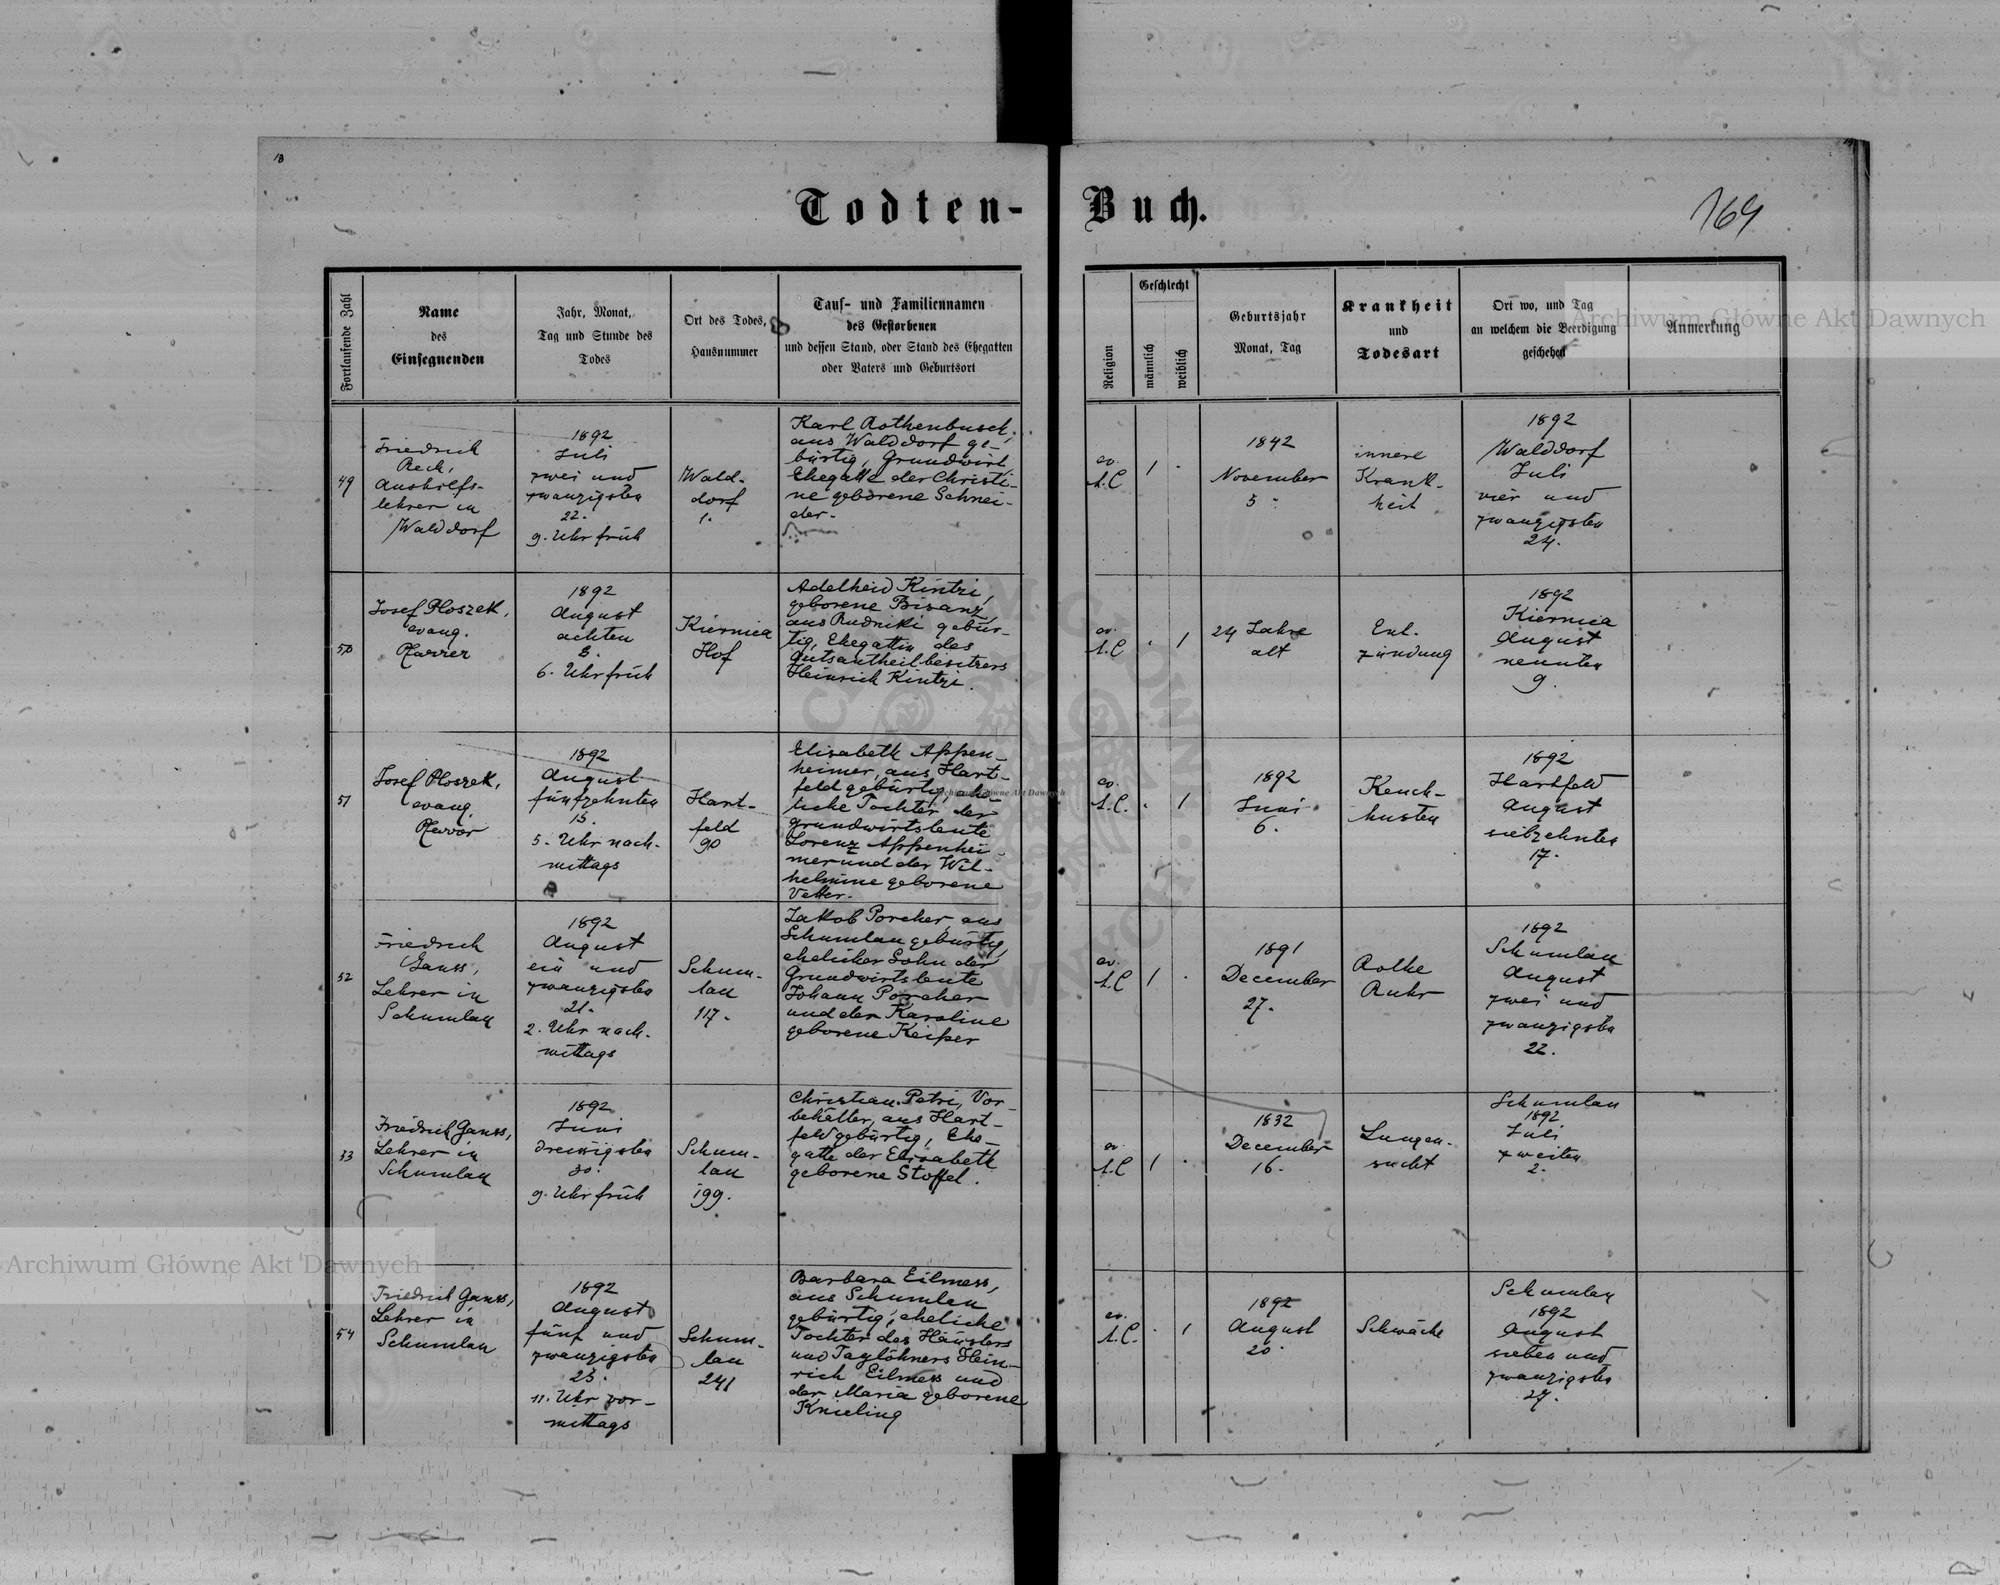 18
Todten-Buch.
164
Fortlaufende Zahl
Name
des
Einsegnenden
Jahr, Monat,
Tag und Stunde des
Todes
Ort des Todes,
Hausnummer
Tauf- und Familiennamen
des Gestorbenen
und dessen Stand, oder Stand des Ehegatten
oder Vaters und Geburtsort
Religion
Geschlecht
männlich
weiblich
Geburtsjahr
Monat, Tag
Krankheit
und
Todesart
Ort wo, und Tag
an welchem die Beerdigung
geschehen
Anmerkung
Archiwum Główne Akt Dawnych
49
Friedrich
Rech,
Aushilfs-
lehrer in
Walddorf
1892
Juli
zwei und
zwanzigsten
22.
9. Uhr früh
Wald-
dorf
1.
Karl Rothenbusch,
aus Walddorf ge-
bürtig, Grundwirt,
Ehegatte der Christi-
ne geborene Schnei-
der.
ev.
A.C
1
1842
November
5.
innere
Krank-
heit
1892
Walddorf
Juli
vier und
zwanzigsten
24.
50
Josef Ploszek,
evang.
Pfarrer
1892
August
achten
8.
6. Uhr früh
Kiernica
Hof
Adelheid Kintzi,
geborene Bisanz,
aus Rudniki gebür-
tig, Ehegattin des
Gutsantheilbesitzers
Heinrich Kintzi.
ev.
A.C
1
24 Jahre
alt
Ent-
zündung
1892
Kiernica
August
neunten
9.
51
Josef Ploszek,
evang.
Pfarrer
1892
August
fünfzehnten
15.
5. Uhr nach-
mittags
Hart-
feld
90
Elisabeth Appen-
heimer, aus Hart-
feld gebürtig, ehe-
liche Tochter der
Grundwirtsleute
Lorenz Appenhei-
mer und der Wil-
helmine geborene
Vetter.
ev.
A.C.
1
1892
Juni
6.
Keuch-
husten
1892
Hartfeld
August
siebzehnten
17.
52
Friedrich
Gauss,
Lehrer in
Schumlau
1892
August
ein und
zwanzigsten
21.
2. Uhr nach-
mittags
Schum-
lau
117.
Jakob Porcher, aus
Schumlau gebürtig,
ehelicher Sohn der
Grundwirtsleute
Johann Porcher
und der Karoline
geborene Keiper
ev.
A.C
1
1891
December
27.
Rothe
Ruhr
1892
Schumlau
August
zwei und
zwanzigsten
22.
53
Friedrich Gauss,
Lehrer in
Schumlau
1892
Juni
dreissigsten
30.
9. Uhr früh
Schum-
lau
199.
Christian Petri, Vor-
behälter, aus Hart-
feld gebürtig, Ehe-
gatte der Elisabeth
geborene Stoffel.
ev
A.C
1
1832
December
16.
Lungen-
sucht
Schumlau
1892
Juli
zweiten
2.
54
Friedrich Gauss,
Lehrer in
Schumlau
1892
August
fünf und
zwanzigsten
25.
11. Uhr vor-
mittags
Schum-
lau
241
Barbara Eilmess,
aus Schumlau
gebürtig, eheliche
Tochter des Häuslers
und Taglöhners Hein-
rich Eilmess und
der Maria geborene
Knieling
ev.
A.C.
1
1892
August
20.
Schwäche
Schumlau
1892
August
sieben und
zwanzigsten
27.
Archiwum Główne Akt Dawnych
Archiwum Główne Akt Dawnych